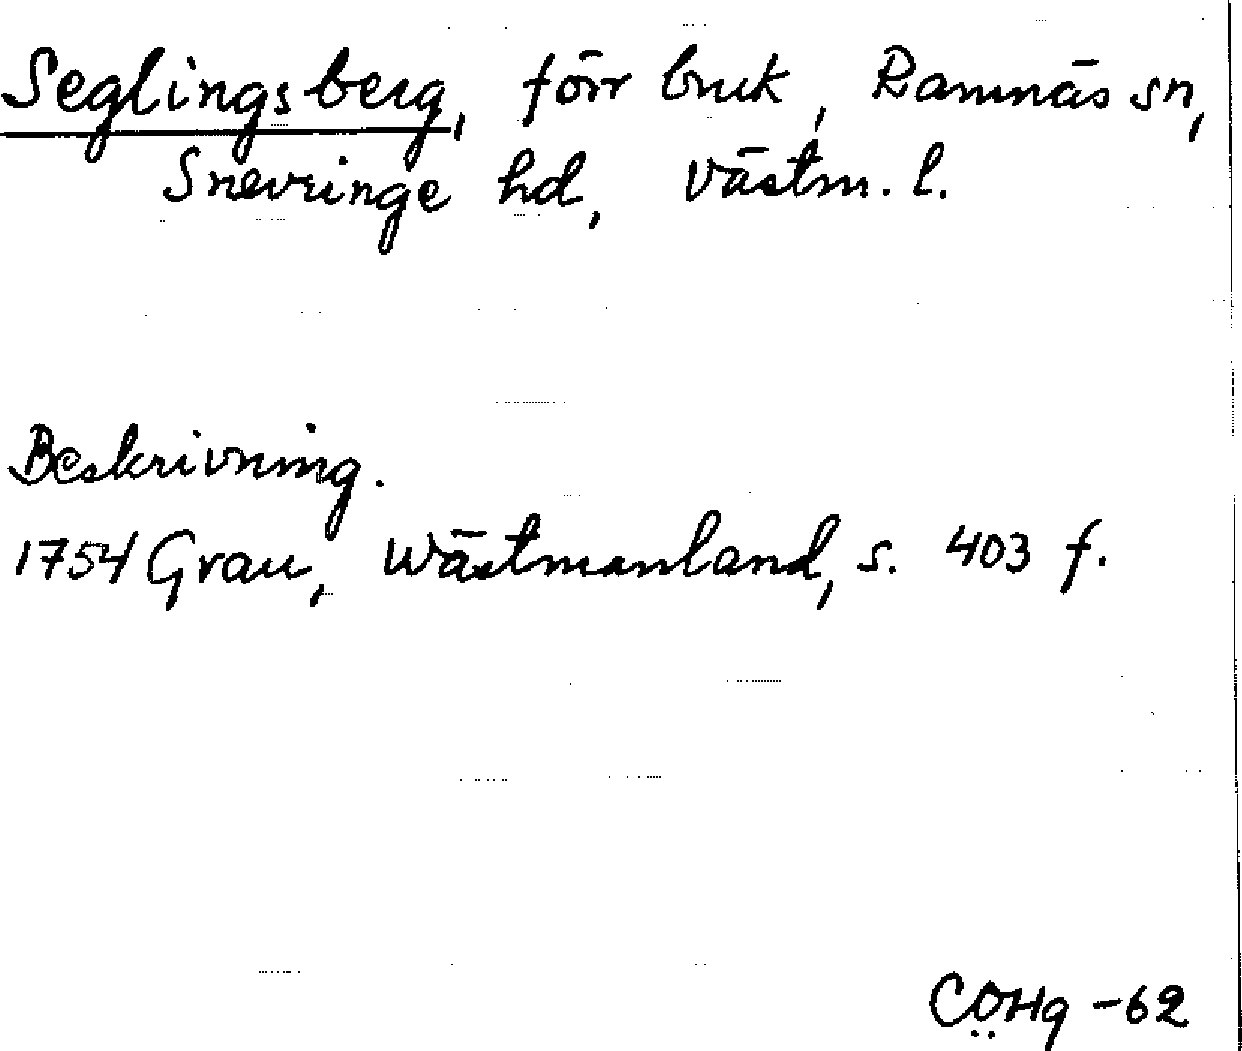 Seglingsberg, förr bruk, Ramnäs sn,
Snevringe hd, Västm. l.
Beskrivning.
1754 Grau, Wästmanland, s. 403 f.
CÖHg -62